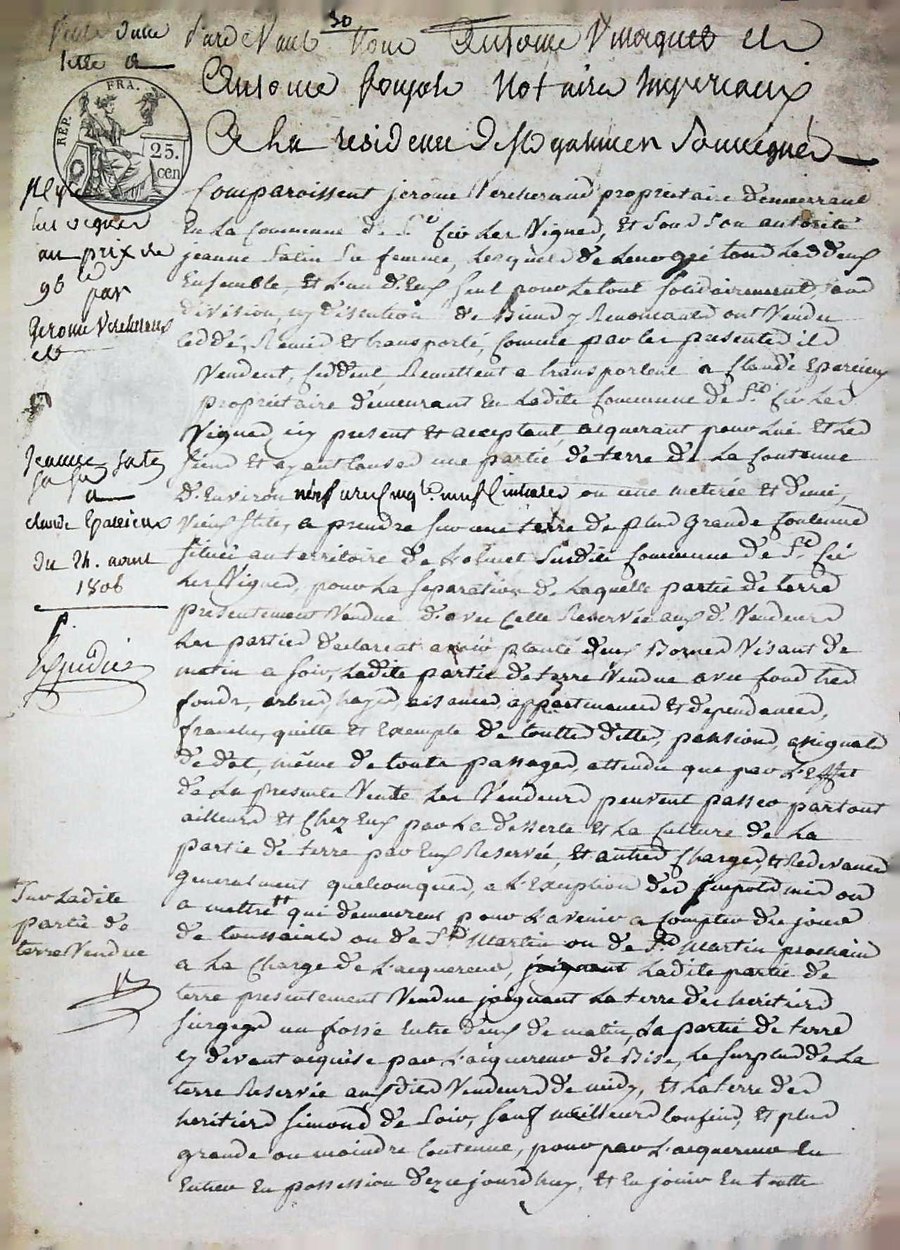 30
Vente d'une
terre a
RÉP. FRA.
25.
cen
Pardevant Nous Antoine Vinaques et
Antoine Notaires Imperiaux
A La residence de soussignés
les vignes
au prix de
96
par
Jerome Vercherand
et
Jeanne Satin
sa
a
claude Eparvieux
du 24. avril
1806
Comparoissent jerome Vercherand proprietaire demeurant
En La Commune de St Cir Les Vignes, Et Sous Son autorité
jeanne Satin Sa femme, Lesquels de Leur gré tous Les deux
Ensemble, Et L'un d'Eux Seul pour Le tout Solidairement, sans
division, ny discution de Biens y Renonçant ont Vendu
cedé, Remis Et transporté, Comme par Les presentes ils
Vendent, Cedent, Remettent a transportent a Claude Eparvieux
proprietaire demeurant En Ladite Commune de St. Cir Les
Vignes, icy present Et acceptant, acquerant pour Lui Et Les
siens Et ayant causes une partie de terre de La Contenue
d'Environ neuf ares ou une meterée Et demi,
Vieux Stile, a prendre sur une terre de plus Grande Contenue
Située au territoire de Susdite Commune de St. Cir
Les Vignes, pour La Separation de Laquelle partie de terre
presentement Vendue d'avec Celle Reservée aux d. Vendeurs
Les parties declarent avoir planté deux Bornes Visant de
matin a soir, Ladite partie de terre Vendue avec fond tres
fonds, arbres, hayes, aisances, appartenances Et dependances,
franche, quitte Et Exempte de toutes dettes, pension, asignats
de dot, même de toute passages, attendu que par L'Effet
de La presente Vente Les Vendeurs peuvent passer partout
ailleurs Et Chez Eux par La desserte Et La Culture de La
partie de terre par Eux Reservée, Et autres Charges, Et Redevances
generalment quelconques, a L'Exeption des impositions ou
a mettre qui demeurent pour L'avenir a Compter du jour
de toussaints ou de St Martin ou de St Martin prochain
a La Charge de L'acquereur, joignant Ladite partie de
terre presentement Vendue joignant La terre des heritiers
un fossé Entre deux de matin, La partie de terre
cy devant acquise par L'acquereur de Bise, Le Surplus de La
terre Reservée aux dits Vendeurs de midy, Et La terre des
heritiers Simond de Soir, Sauf meilleurs Confins, Et plus
grande ou moindre Contenue, pour par L'acquereur En
Entrer En possession dezce jourdhuy, Et En jouir En toutte
Sur Ladite
partie de
terre Vendue